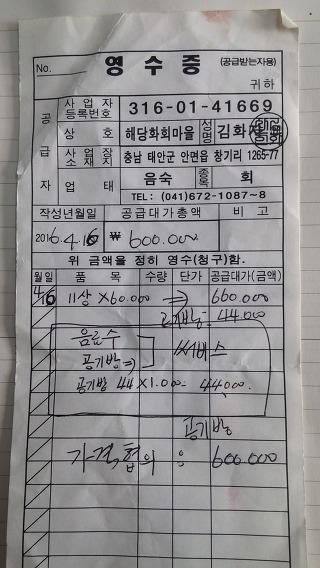 No. 영 수 증 (공급받는자용)
귀하
공 급 자
사업자 등록번호 316-01-41669
상 호 해당화회마을 성명 김화자
사업장 소재지 충남 태안군 안면읍 창기리 1265-77
업 태 음숙 종목 회
TEL: (041)672-1087~8
작성년월일 공급대가총액 비 고
2016.4.16 ₩ 600.000
위 금액을 정히 영수(청구)함.
월일 품 목 수량 단가 공급대가(금액)
4/16 11상 X60.000 ⇒ 660.000
공기밥= 44.000
음료수 써비스
공기밥 ⇒
공기밥 44X1.00- 44,00.
공기밥
가격협의 : 600.000